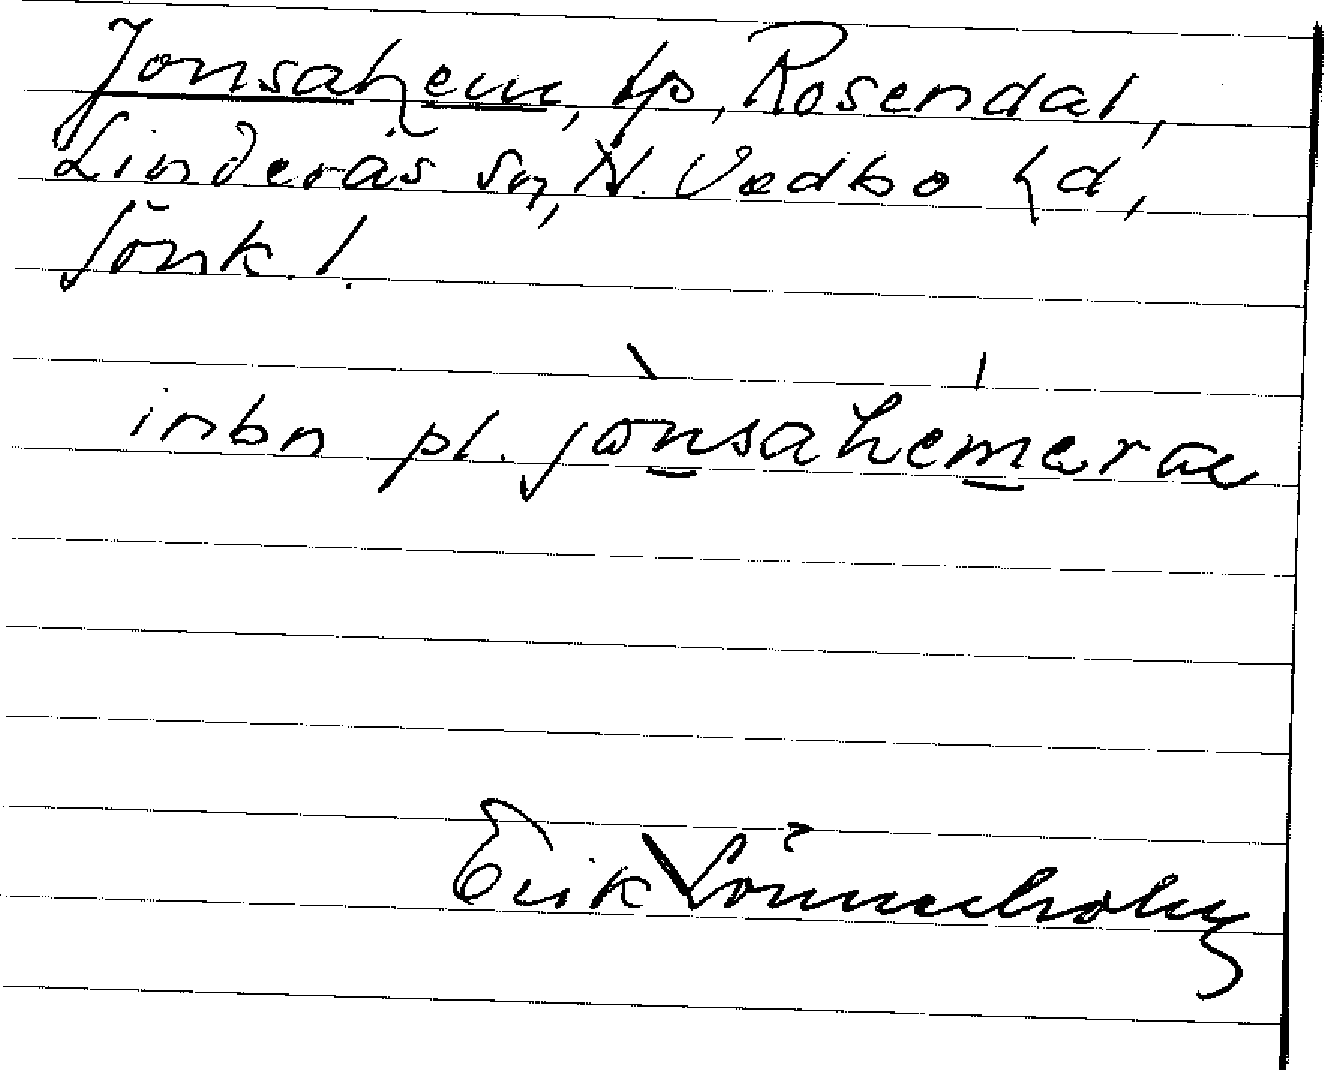 Jonsahem, tp, Rosendal,
Linderås sn, N. Vedbo hd,
Jönk. l.
inbn pl. jònsahémeræ
Erik Lönnerholm